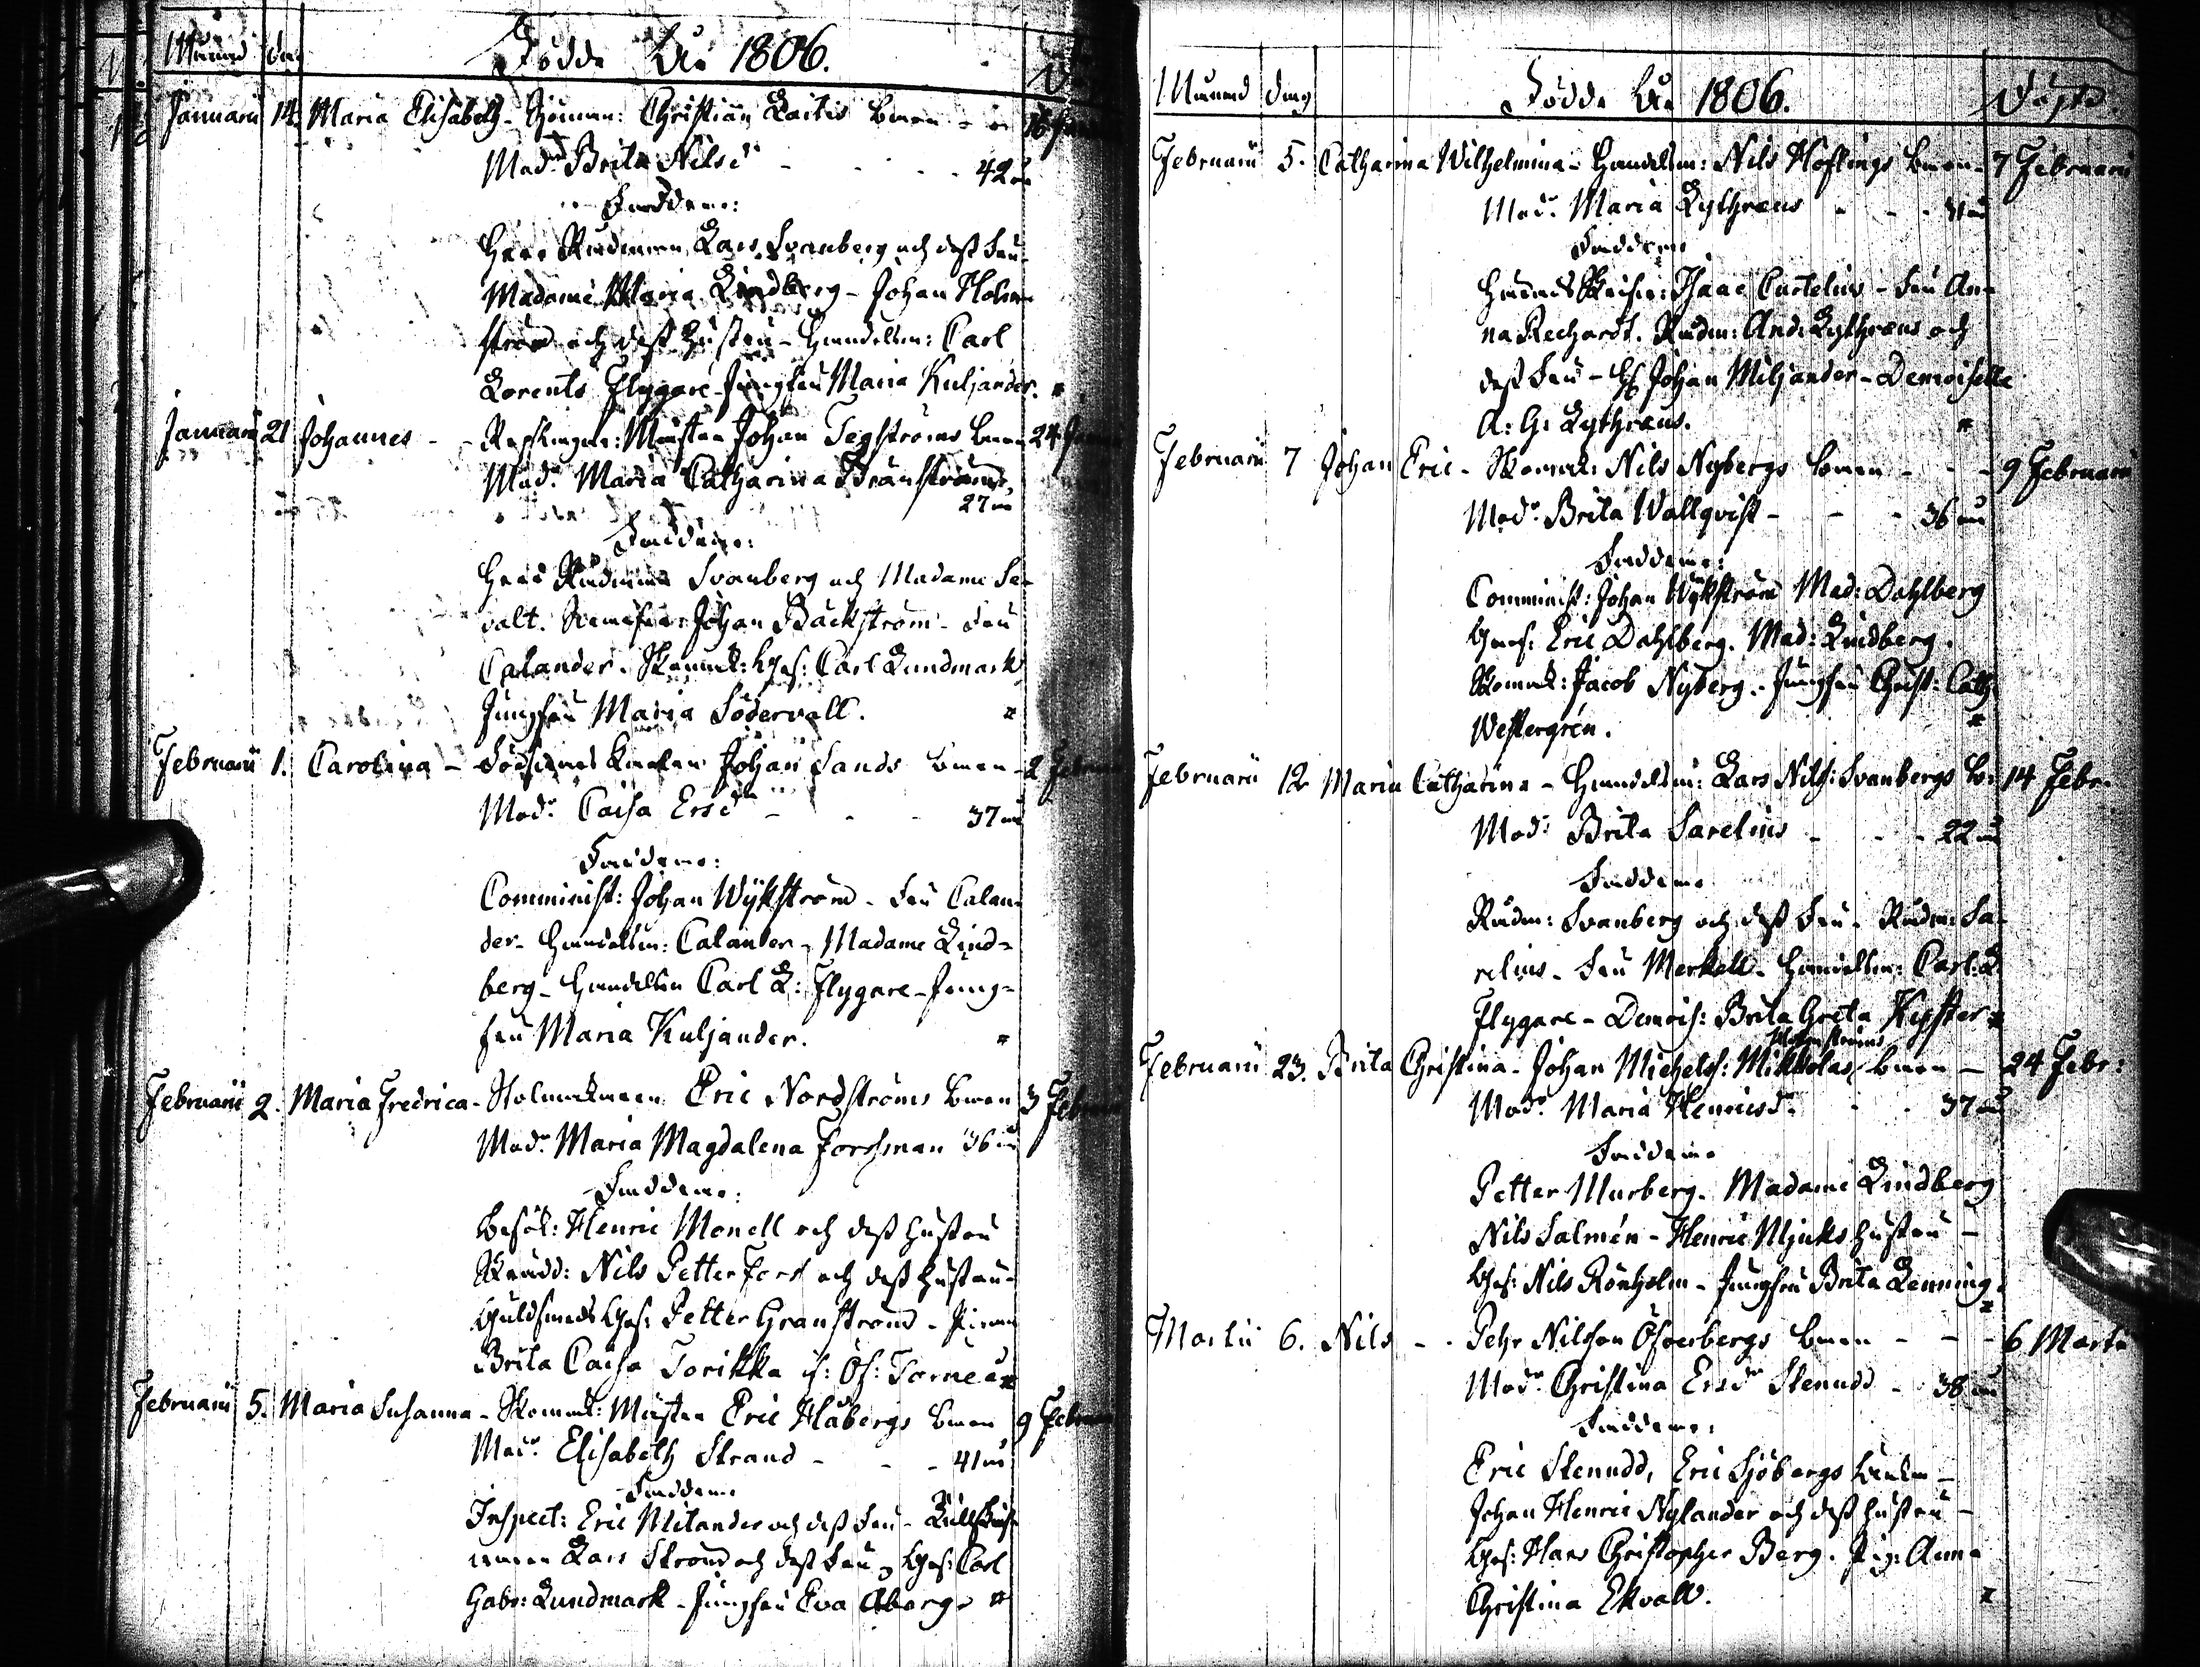 Månad dag Födde År 1806.
Januarii 14. Maria Elisabeth - Christian Laitis barn 16 Jan
Mod:r Brita Nilsd:r - - - 42 år
Faddrar:
Herr Rådman Lars Svanberg och dess Fru
Madame Maria Lindberg - Johan Holm
ström och dess hustru - Handelsm: Carl
Lorents Flygare - Jungfru Maria Kuljander.
Januarii 21 Johannes - - Mästar Johan Tegströms barn 24 Jan
Mod:r Maria Catharina Bränström
27 år
Faddrar:
Herr Rådman Svanberg och Madame Sa-
valt. Johan Bäckström - Fru
Calander. Skomak: Ges: Carl Lundmark
Jungfru Maria Södervall.
Februarii 1. Carolina - Johan Sands barn - 2 Februarii
Mod:r Caisa Ersd:r - - - 37 år
Faddrar:
Comminist: Johan Wykström - Fru Calan-
der - Handelsm: Calander - Madame Lind-
berg - Handelsm Carl L: Flygare - Jung-
fru Maria Kuljander.
Februarii 2. Maria Fredrica - Eric Nordströms barn 3 Februarii
Mod:r Maria Magdalena Forssman 36 år
Faddrar:
Henric Monell och dess hustru
Skrädd: Nils Petter Fors och dess hustru -
Guldsmeds Ges: Petter Granström - Pigan
Brita Caisa Torikka if: Öf: Torneå
Februarii 5. Maria Susanna - Skomak: Mästar Eric Håbergs barn 9 Februarii
Mod:r Elisabeth Strand - - - 41 år
Faddrar
Inspect: Eric Mitander och dess Fru -
Lars Ström och dess Fru - Ges: Carl
Gabr: Lundmark - Jungfru Eva Åberg
Månad dag Födde År 1806. Döpte.
Februarii 5. Catharina Wilhelmina - Handelsm: Nils Höflings barn - 7 Februarii
Mod:r Maria Lythræus - - - 31 år
Faddrar
Isaac Curtelius - Fru An-
na Rechardt. Rådm: And: Lythræus och
dess Fru - Hr Johan Miljander - Demoiselle
A: G: Lythræus.
Februarii 7 Johan Eric - Skomak: Nils Nybergs barn - - - 9 Februarii
Mod:r Brita Wallqvist - - - 36 år
Faddrar:
Comminist: Johan Wykström Mad: Dahlberg
Eric Dahlberg. Mad: Lindberg.
Skomak: Jacob Nyberg. - Jungfru Christ: Cath:
Westergrén.
Februarii 12 Maria Catharina - Handelsm: Lars Nilss: Svanbergs b: 14 Febr.
Mod:r Brita Sarelius - - - 22 år
Faddrar
Rådm: Svanberg och dess Fru - Rådm: Sa-
relius - Fru Merkell - Handelsm: Carl: L:
Flygare - Demois: Brita Greta Kyster
Februarii 23. Brita Christina - Johan Michelss: barn - 24 Febr:
Mod:r Maria Henricsd:r - - 37 år
Faddrar
Petter Murberg. Madame Lindberg
Nils Salmén - Henric Mjuks hustru -
Ges: Nils Rönholm - Jungfru Brita Lenning.
Martii 6. Nils - - Pehr Nilsson Öfverbergs barn - - - 6 Martii
Mod:r Christina Ersd:r Stenudd - 38 år
Faddrar:
Eric Stenudd, Eric Sjöbergs Enka -
Johan Henric Nylander och dess hustru -
Ges: Hans Christopher Berg. Pig: Anna
Christina Ekvall.